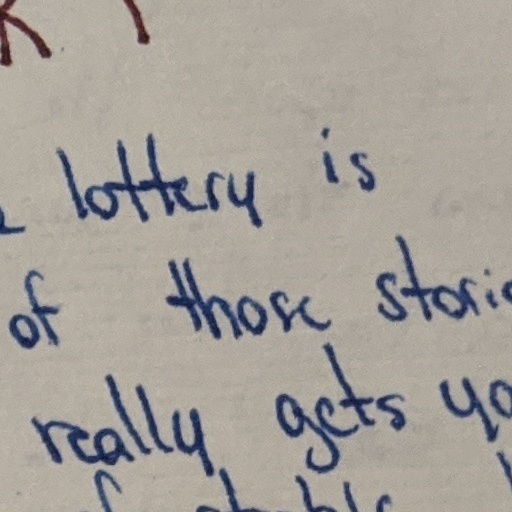 lottery is
of those stori
really gets yo